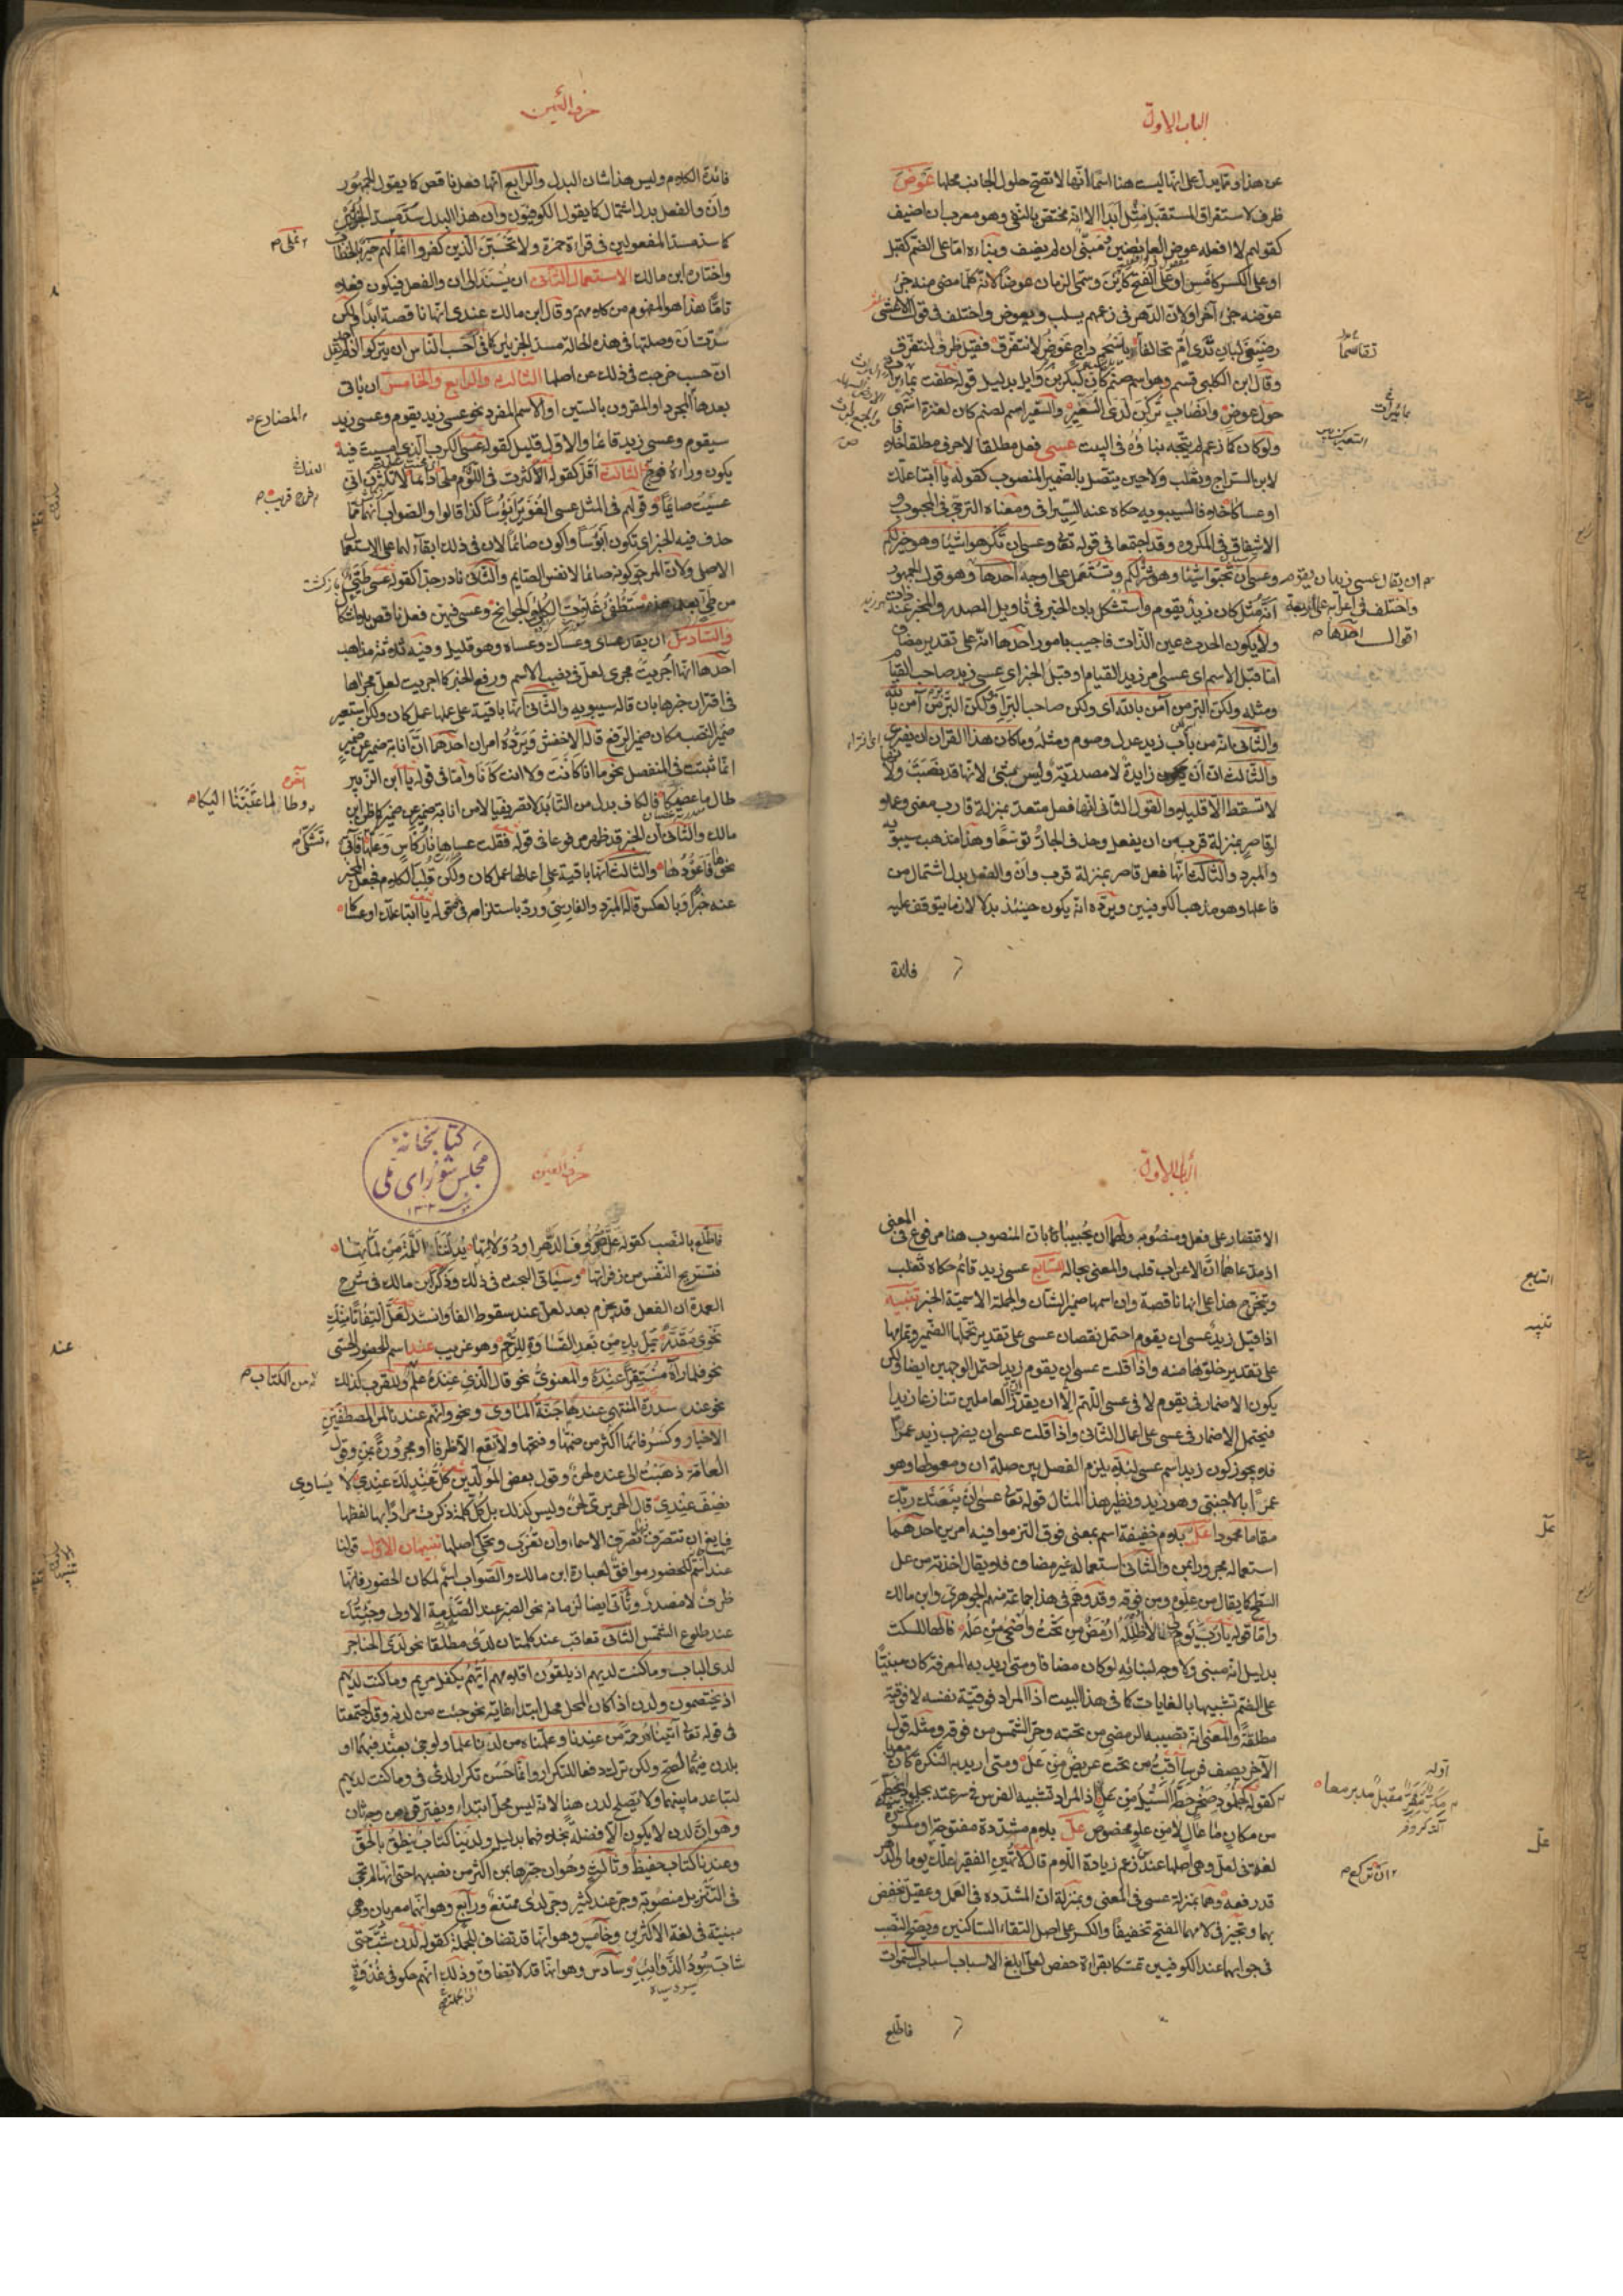 الباب الاول
عن هذا ومما يدل على انها ليست هنا اسما انها لا تصح حلول الجانب محلها عوض
ظرف لاستغراق المستقبل مثل ابدا الا انه مختص بالنفي وهو معرب ان اضيف
كقولهم لا افعله عوض العايضين ومبنى ان لم يضف وبناؤه اما على الضم كقبل
او على الكسر كامس او على الفتح كاين وسمى الزمان عوضا لانه كلما مضى منه جزء
عوضه جزء آخر او لان الدهر في زعمهم يسلب ويعوض واختلف في قول الاعشى
رضيعى لبان ثدى ام تحالفا باسحم داج عوض لا نتفرق فقيل ظرف لنتفرق
وقال ابن الكلبي قسم وهو اسم صنم كان لبكر بن وايل بدليل قوله حلفت بمايرات
حول عوض وانصاب تركن لدى السعير والسعير اسم لصنم كان لعنزة انتهى
ولو كان كما زعم لم يتجه بناؤه في البيت عسى فعل مطلقا لا حرف مطلقا خلافا
لابن السراج وثعلب ولا حين يتصل بالضمير المنصوب كقوله يا ابتا علك
او عساكا خلافا لسيبويه حكاه عنه السيرافي ومعناه الترجي في المحبوب
والاشفاق في المكروه وقد اجتمعا في قوله تعالى وعسى ان تكرهوا شيئا وهو خير لكم
وعسى ان تحبوا شيئا وهو شر لكم وتستعمل على اوجه احدها وهو قول الجمهور
انه مثل كان زيد يقوم واستشكل بان الخبر في تاويل المصدر والمخبر عنه ذات
ولا يكون الحدث عين الذات فاجيب بامور احدها انه على تقدير مضاف
اما قبل الاسم اى عسى امر زيد القيام او قبل الخبر اى عسى زيد صاحب القيام
ومثله ولكن البر من آمن بالله اى ولكن صاحب البر او ولكن البر بر من آمن بالله
والثاني انه من باب زيد عدل وصوم ومثله وما كان هذا القرآن ان يفترى
والثالث ان ان زايدة لا مصدرية وليس بشئ لانها قد نصبت ولانها
لا تسقط الا قليلا والقول الثاني انها فعل متعد بمنزلة قارب معنى وعملا
او قاصر بمنزلة قرب من ان يفعل وحذف الجار توسعا وهذا مذهب سيبويه
والمبرد والثالث انها فعل قاصر بمنزلة قرب وان والفعل بدل اشتمال من
فاعلها وهو مذهب الكوفيين ويرده انه يكون حينئذ بدلا لازما يتوقف عليه
فائدة
تقاسما
بمائرات
ان يقال عسى زيد ان يقوم
واختلف في اعرابه على اربعة
اقوال احدها
حرف العين
فائدة الكلام وليس هذا شان البدل والرابع انها فعل ناقص كما يقول الجمهور
وان والفعل بدل اشتمال كما يقول الكوفيون وان هذا البدل سد مسد الجزئين
كما سد مسد المفعولين في قراءة حمزة ولا تحسبن الذين كفروا انما نملى لهم خير بالخطاب
واختاره ابن مالك الاستعمال الثاني ان يسند الى ان والفعل فيكون فعلا
تاما هذا هو المفهوم من كلامهم وقال ابن مالك عندى انها ناقصة ابدا ولكن
سدت ان وصلتها في هذه الحالة مسد الجزئين كما في احسب الناس ان يتركوا اذ لم يقل احد
ان حسب خرجت في ذلك عن اصلها الثالث والرابع والخامس ان ياتى
بعدها المجرد او المقرون بالسين او الاسم المفرد نحو عسى زيد يقوم وعسى زيد
سيقوم وعسى زيد قائما والاول قليل كقوله عسى الكرب الذى امسيت فيه
يكون وراءه فرج والثالث اقل كقوله اكثرت في اللوم ملحا دائما لا تكثرن انى
عسيت صائما وقولهم في المثل عسى الغوير ابؤسا كذا قالوا والصواب انهما مما
حذف فيه الخبر اى تكون ابؤسا واكون صائما لان في ذلك ابقاء لهما على الاستعمال
الاصلى ولان المرجو كونه صائما لا نفس الصايم والثاني نادر جدا كقوله عسى طيئ
من طيئ بعد هذه ستطفئ غلات الكلى والجوانح وعسى فيهن فعل ناقص بلا اشكال
والسادس ان يقال عساى وعساك وعساه وهو قليل وفيه ثلاثة مذاهب
احدها انها اجريت مجرى لعل في نصب الاسم ورفع الخبر كما اجريت لعل مجراها
في اقتران خبرها بان قاله سيبويه والثاني انها باقية على عملها عمل كان ولكن استعير
ضمير النصب مكان ضمير الرفع قاله الاخفش ويرده امران احدهما ان انابة ضمير عن ضمير
انما ثبتت في المنفصل نحو ما انا كانت ولا انت كانا واما في قوله يا ابن الزبير
طال ما عصيكا فالكاف بدل من التاء بدلا تصريفيا لا من انابة ضمير عن ضمير كما ظن ابن
مالك والثاني ان الخبر قد ظهر مرفوعا في قوله فقلت عساها نار كاس وعلها تشكى فآتى
نحوها فاعودها والثالث انها باقية على اعمالها عمل كان ولكن قلب الكلام فجعل المخبر
عنه خبرا وبالعكس قاله المبرد والفارسي ورد باستلزامه في نحو قوله يا ابتا علك او عساكا
نملى
المضارع
فرج قريب
وطالما عنيتنا اليكا
تشكى
الباب الاول
الاقتصار على فعل ومنصوبه ولهما ان يجيبا بان المنصوب هنا مرفوع في المعنى
اذ مدعاهما ان الاعراب قلب والمعنى بحاله السابع عسى زيد قائم حكاه ثعلب
ويتخرج هذا على انها ناقصة وان اسمها ضمير الشان والجملة الاسمية الخبر تنبيه
اذا قيل زيد عسى ان يقوم احتمل نقصان عسى على تقدير تحملها الضمير وتمامها
على تقدير خلوها منه واذا قلت عسى ان يقوم زيد احتمل الوجهين ايضا لكن
يكون الاضمار في يقوم لا في عسى اللهم الا ان يقدر ان العاملين تنازعا زيدا
فيحتمل الاضمار في عسى على اعمال الثاني واذا قلت عسى ان يضرب زيد عمرا
فلا يجوز كون زيد اسم عسى لئلا يلزم الفصل بين صلة ان ومعمولها وهو
عمرا بالاجنبي وهو زيد ونظير هذا المثال قوله تعالى عسى ان يبعثك ربك
مقاما محمودا عل بلام خفيفة اسم بمعنى فوق التزموا فيه امرين احدهما
استعماله مجرورا بمن والثاني استعماله غير مضاف فلا يقال اخذته من عل
السطح كما يقال من علوه ومن فوقه وقد وهم في هذا جماعة منهم الجوهري وابن مالك
واما قوله يا رب يوم لى لا اظلله ارمض من تحت واضحى من عله فالهاء للسكت
بدليل انه مبنى ولا وجه لبنائه لو كان مضافا ومتى اريد به المعرفة كان مبنيا
على الضم تشبيها بالغايات كما في هذا البيت اذ المراد فوقية نفسه لا فوقية
مطلقة والمعنى انه تصيبه الرمضى من تحته وحر الشمس من فوقه ومثله قول
الآخر يصف فرسا اقب من تحت عريض من عل ومتى اريد به النكرة كان معربا
كقوله كجلمود صخر حطه السيل من عل اذ المراد تشبيه الفرس في سرعته بجلمود انحط
من مكان ما عال لا من علو مخصوص عل بلام مشددة مفتوحة او مكسورة
لغة في لعل وهى اصلها عند من زعم زيادة اللام قال لا تهين الفقير علك يوما والدهر
قد رفعه وهما بمنزلة عسى في المعنى وبمنزلة ان المشدده في العمل وعقيل تخفض
بهما وتجيز في لامهما الفتح تخفيفا والكسر على اصل التقاء الساكنين ويصح النصب
في جوابهما عند الكوفيين تمسكا بقراءة حفص لعلى ابلغ الاسباب اسباب السموات
فاطلع
السابع
تنبيه
عل
اوله
مكر مفر مقبل مدبر معا
عل
ان تركع
كتابخانه
مجلس شورای ملی
حرف العين
فاطلع بالنصب كقوله عل صروف الدهر او دولاتها يدلننا اللمة من لماتها
فتستريح النفس من زفراتها وسياتى البحث في ذلك وذكر ابن مالك في شرح
العمدة ان الفعل قد يجزم بعد لعل عند سقوط الفا وانشد لعل التفاتا منك
نحوى مقدر يمل بك من بعد القساوة للرحم وهو غريب عند اسم للحضور الحسى
نحو فلما رآه مستقرا عنده والمعنوى نحو قال الذى عنده علم وللقرب كذلك
نحو عند سدرة المنتهى عندها جنة الماوى ونحو وانهم عندنا لمن المصطفين
الاخيار وكسر فائها اكثر من ضمها وفتحها ولا تقع الا ظرفا او مجرورة بمن وقول
العامة ذهبت الى عنده لحن وقول بعض المولدين كل عند لك عندى لا يساوى
نصف عندى قال الحريرى لحن وليس كذلك بل كل كلمة ذكرت مرادا بها لفظها
فسايغ ان تتصرف تصرف الاسماء وان تعرب ويحكى اصلها تنبيهان الاول قولنا
عند اسم للحضور موافق لعبارة ابن مالك والصواب اسم لمكان الحضور فانها
ظرف لا مصدر وتاتى ايضا لزمانه نحو الصبر عند الصدمة الاولى وجئتك
عند طلوع الشمس الثاني تعاقب عند كلمتان لدى مطلقا نحو لدى الحناجر
لدى الباب وما كنت لديهم اذ يلقون اقلامهم ايهم يكفل مريم وما كنت لديهم
اذ يختصمون ولدن اذا كان المحل محل ابتداء غاية نحو جئت من لدنه وقد اجتمعتا
في قوله تعالى آتيناه رحمة من عندنا وعلمناه من لدنا علما ولو جئ بعند فيهما او
بلدن فيهما لصح ولكن ترك دفعا للتكرار وانما حسن تكرار لدى في وما كنت لديهم
لتباعد ما بينهما ولا يصلح لدن هنا لانه ليس محل ابتداء ويفترقن من وجه ثان
وهو ان لدن لا يكون الا فضلة بخلافهما بدليل ولدينا كتاب ينطق بالحق
وعندنا كتاب حفيظ وثالث وهو ان جرها بمن اكثر من نصبها حتى انها لم تجئ
في التنزيل منصوبة وجر عند كثير وجر لدى ممتنع ورابع وهو انهما معربان وهى
مبنية في لغة الاكثرين وخامس وهو انها قد تضاف للجملة كقوله لدن شب حتى
شاب سود الذوايب وسادس وهو انها قد لا تضاف وذلك انهم حكوا في غدوة
عند
من الكتاب